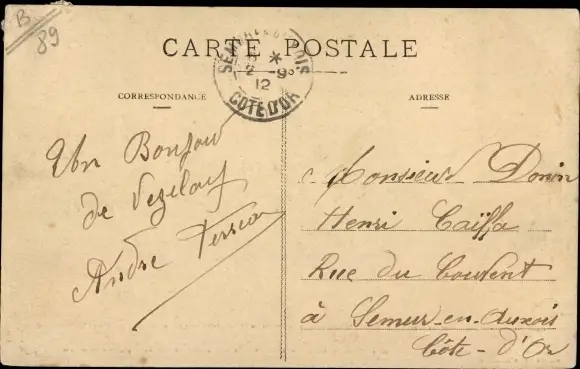 B
89
CARTE POSTALE
SEMUR-EN-AUXOIS
12
COTE D'OR
CORRESPONDANCE
ADRESSE
Un Bonjour
de Vezelay
André
Monsieur Donin
Henri Caïffa
Rue du Couvent
à Semur-en-Auxois
Côte-d'Or